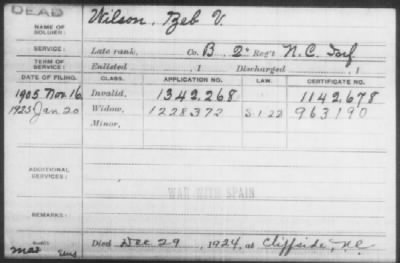 DEAD
NAME OF SOLDIER: Wilson, Zeb V.
SERVICE: Late rank, Co. B 2" Reg't N.C. Inf
TERM OF SERVICE: Enlisted , 1 Discharged , 1
DATE OF FILING. CLASS. APPLICATION NO. LAW. CERTIFICATE NO.
1905 Nov. 16 Invalid, 1342,268 1142,678
1925 Jan 20 Widow, 1228372 5-1-22 963190
Minor,
ADDITIONAL SERVICES:
WAR WITH SPAIN
REMARKS:
Died Dec 29, 1924, at Cliffside, N.C.